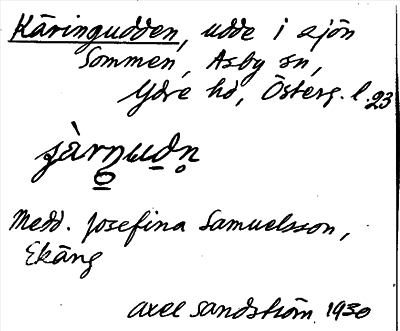 Käringudden, udde i sjön
Sommen, Asby sn,
Ydre hd, Österg. l.
23
Medd. Josefina Samuelsson,
Ekäng
Axel Sandström 1930